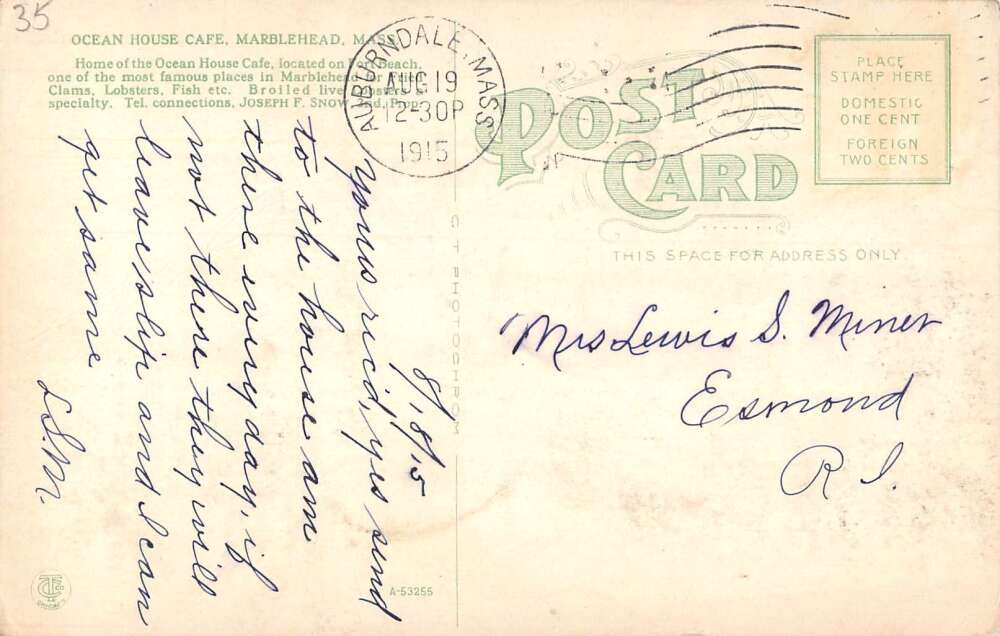 35
OCEAN HOUSE CAFE, MARBLEHEAD, MASS.
Home of the Ocean House Cafe, located on Fort Beach,
one of the most famous places in Marblehead for Fried
Clams, Lobsters, Fish etc. Broiled live lobsters a
specialty. Tel. connections, JOSEPH F. SNOW, 2nd, Prop.
AUBURNDALE, MASS.
AUG 19
12-30P
1915
POST CARD
THIS SPACE FOR ADDRESS ONLY.
PLACE
STAMP HERE
DOMESTIC
ONE CENT
FOREIGN
TWO CENTS
8/18/15
yours recd, yes send
to the house am
there every day, if
not there they will
leave slip and I can
get same
L.S.M.
Mrs Lewis S. Miner
Esmond
R I.
C T PHOTOCHROM
A-53255